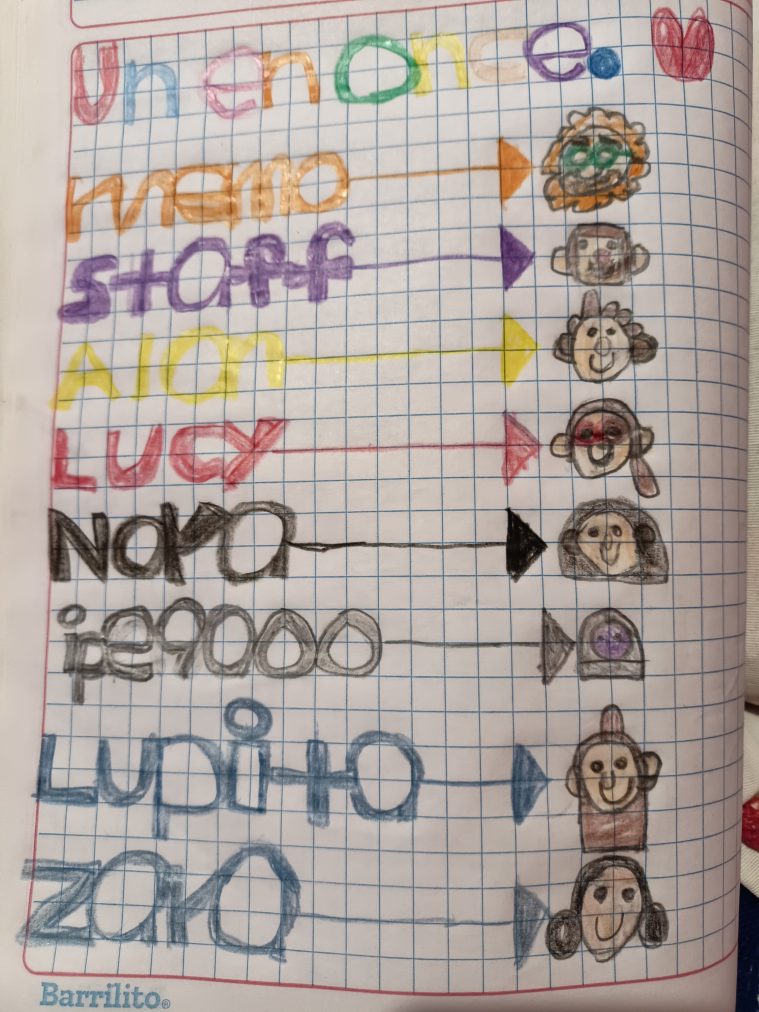 Un en once.
memo
staff
Alon
Lucy
Nara
ipe9000
Lupita
zara
Barrilito®